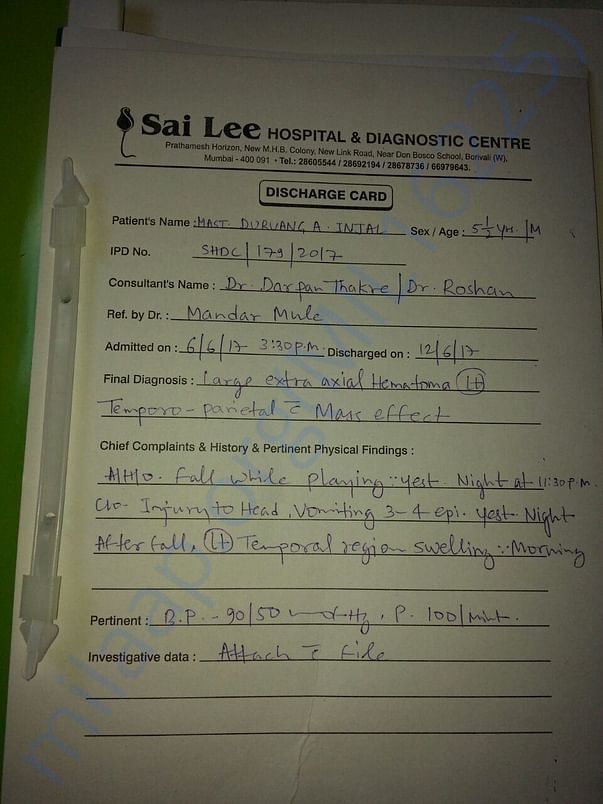 Sai Lee HOSPITAL & DIAGNOSTIC CENTRE
Prathamesh Horizon, New M.H.B. Colony, New Link Road, Near Don Bosco School, Borivali (W),
Mumbai - 400 091 • Tel.: 28605544 / 28692194 / 28678736 / 66979643.
DISCHARGE CARD
Patient's Name : MAST. DURVANG A. INJAL Sex / Age : 5½ yrs. / M
IPD No. SHDC / 179 / 2017
Consultant's Name : Dr. Darpan Thakre / Dr. Roshan
Ref. by Dr. : Mandar Mule
Admitted on : 6/6/17 3:30 p.m. Discharged on : 12/6/17
Final Diagnosis : Large extra axial Hematoma (Lt)
Temporo-parietal c̄ Mass effect
Chief Complaints & History & Pertinent Physical Findings :
A/H/O. Fall while playing :: yest. Night at 11:30 p.m.
C/o- Injury to Head, Vomiting 3-4 epi. yest. Night
After fall, (Lt) Temporal region swelling :: Morning
Pertinent : B.P. - 90/50 mm of Hg, P. 100/mint.
Investigative data : Attach c̄ file
milaap.org